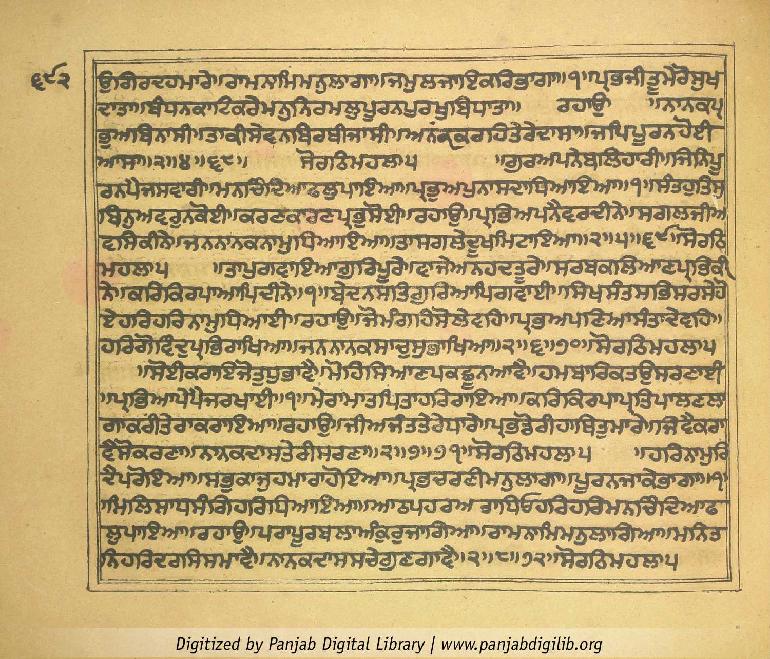 ੬੯੨
ਉਗੀਰਦਹਮਾਰੇ॥ਰਾਮਨਾਮਿਮਨੁਲਾਗਾ॥ਜਮੁਲਜਾਇਕਰਿਭਾਗਾ॥੧॥ਪ੍ਰਭਜੀਤੂਮੇਰੋਸੁਖ
ਦਾਤਾ॥ਬੰਧਨਕਾਟਿਕਰੇਮਨੁਨਿਰਮਲੁਪੂਰਨਪੁਰਖੁਬਿਧਾਤਾ॥ ਰਹਾਉ ॥ਨਾਨਕਪ੍
ਭੁਅਬਿਨਾਸੀ॥ਤਾਕੀਸੇਵਨਬਿਰਥੀਜਾਸੀ॥ਅਨਦਕਰਹਿਤੇਰੇਦਾਸਾ॥ਜਪਿਪੂਰਨਹੋਈ
ਆਸਾ॥੨॥੪॥੬੮॥ ਸੋਰਠਿਮਹਲਾ੫ ॥ਗੁਰਅਪਨੇਬਲਿਹਾਰੀ॥ਜਿਨਿਪੂ
ਰਨਪੈਜਸਵਾਰੀ॥ਮਨਚਿੰਦਿਆਫਲੁਪਾਇਆ॥ਪ੍ਰਭੁਅਪੁਨਾਸਦਾਧਿਆਇਆ॥੧॥ਸੰਤਹੁਤਿਸੁ
ਬਿਨੁਅਵਰੁਨਕੋਈ॥ਕਰਣਕਾਰਣਪ੍ਰਭੁਸੋਈ॥ਰਹਾਉ॥ਪ੍ਰਭਿਅਪਨੈਵਰਦੀਨੇ॥ਸਗਲਜੀਅ
ਵਸਿਕੀਨੇ॥ਜਨਨਾਨਕਨਾਮੁਧਿਆਇਆ॥ਤਾਸਗਲੇਦੂਖਮਿਟਾਇਆ॥੨॥੫॥੬੯॥ਸੋਰਠਿ
ਮਹਲਾ੫ ॥ਤਾਪੁਗਵਾਇਆਗੁਰਿਪੂਰੇ॥ਵਾਜੇਅਨਹਦਤੂਰੇ॥ਸਰਬਕਲਿਆਣਪ੍ਰਭਿਕੀ
ਨੇ॥ਕਰਿਕਿਰਪਾਆਪਿਦੀਨੇ॥੧॥ਬੇਦਨਸਤਿਗੁਰਿਆਪਿਗਵਾਈ॥ਸਿਖਸੰਤਸਭਿਸਰਸੇਹੋ
ਏਹਰਿਹਰਿਨਾਮੁਧਿਆਈ॥ਰਹਾਉ॥ਜੋਮੰਗਹਿਸੋਲੇਵਹਿ॥ਪ੍ਰਭਅਪਣਿਆਸੰਤਾਦੇਵਹਿ॥
ਹਰਿਗੋਵਿੰਦੁਪ੍ਰਭਿਰਾਖਿਆ॥ਜਨਨਾਨਕਸਾਚੁਸੁਭਾਖਿਆ॥੨॥੬॥੭੦॥ਸੋਰਠਿਮਹਲਾ੫
॥ਸੋਈਕਰਾਇਜੋਤੁਧੁਭਾਵੈ॥ਮੋਹਿਸਿਆਣਪਕਛੂਨਆਵੈ॥ਹਮਬਾਰਿਕਤਉਸਰਣਾਈ
॥ਪ੍ਰਭਿਆਪੇਪੈਜਰਖਾਈ॥੧॥ਮੇਰਾਮਾਤਪਿਤਾਹਰਿਰਾਇਆ॥ਕਰਿਕਿਰਪਾਪ੍ਰਤਿਪਾਲਣਲਾ
ਗਾਕਰੀਤੇਰਾਕਰਾਇਆ॥ਰਹਾਉ॥ਜੀਅਜੰਤਤੇਰੇਧਾਰੇ॥ਪ੍ਰਭਡੋਰੀਹਾਥਿਤੁਮਾਰੇ॥ਜਿਕਰਾ
ਵੈਸੋਕਰਣਾ॥ਨਾਨਕਦਾਸਤੇਰੀਸਰਣਾ॥੨॥੭॥੭੧॥ਸੋਰਠਿਮਹਲਾ੫ ॥ਹਰਿਨਾਮੁਰਿ
ਦੈਪਰੋਇਆ॥ਸਭੁਕਾਜੁਹਮਾਰਾਹੋਇਆ॥ਪ੍ਰਭਚਰਣੀਮਨੁਲਾਗਾ॥ਪੂਰਨਜਾਕੇਭਾਗਾ॥੧
॥ਮਿਲਿਸਾਧਸੰਗਿਹਰਿਧਿਆਇਆ॥ਆਠਪਹਰਅਰਾਧਿਓਹਰਿਹਰਿਮਨਚਿੰਦਿਆਫ
ਲੁਪਾਇਆ॥ਰਹਾਉ॥ਪਰਾਪੂਰਬਲਾਅੰਕੁਰੁਜਾਗਿਆ॥ਰਾਮਨਾਮਿਮਨੁਲਾਗਿਆ॥ਮਨਿਤ
ਨਿਹਰਿਦਰਸਿਸਮਾਵੈ॥ਨਾਨਕਦਾਸਸਚੇਗੁਣਗਾਵੈ॥੨॥੮॥੭੨॥ਸੋਰਠਿਮਹਲਾ੫
Digitized by Panjab Digital Library | www.panjabdigilib.org